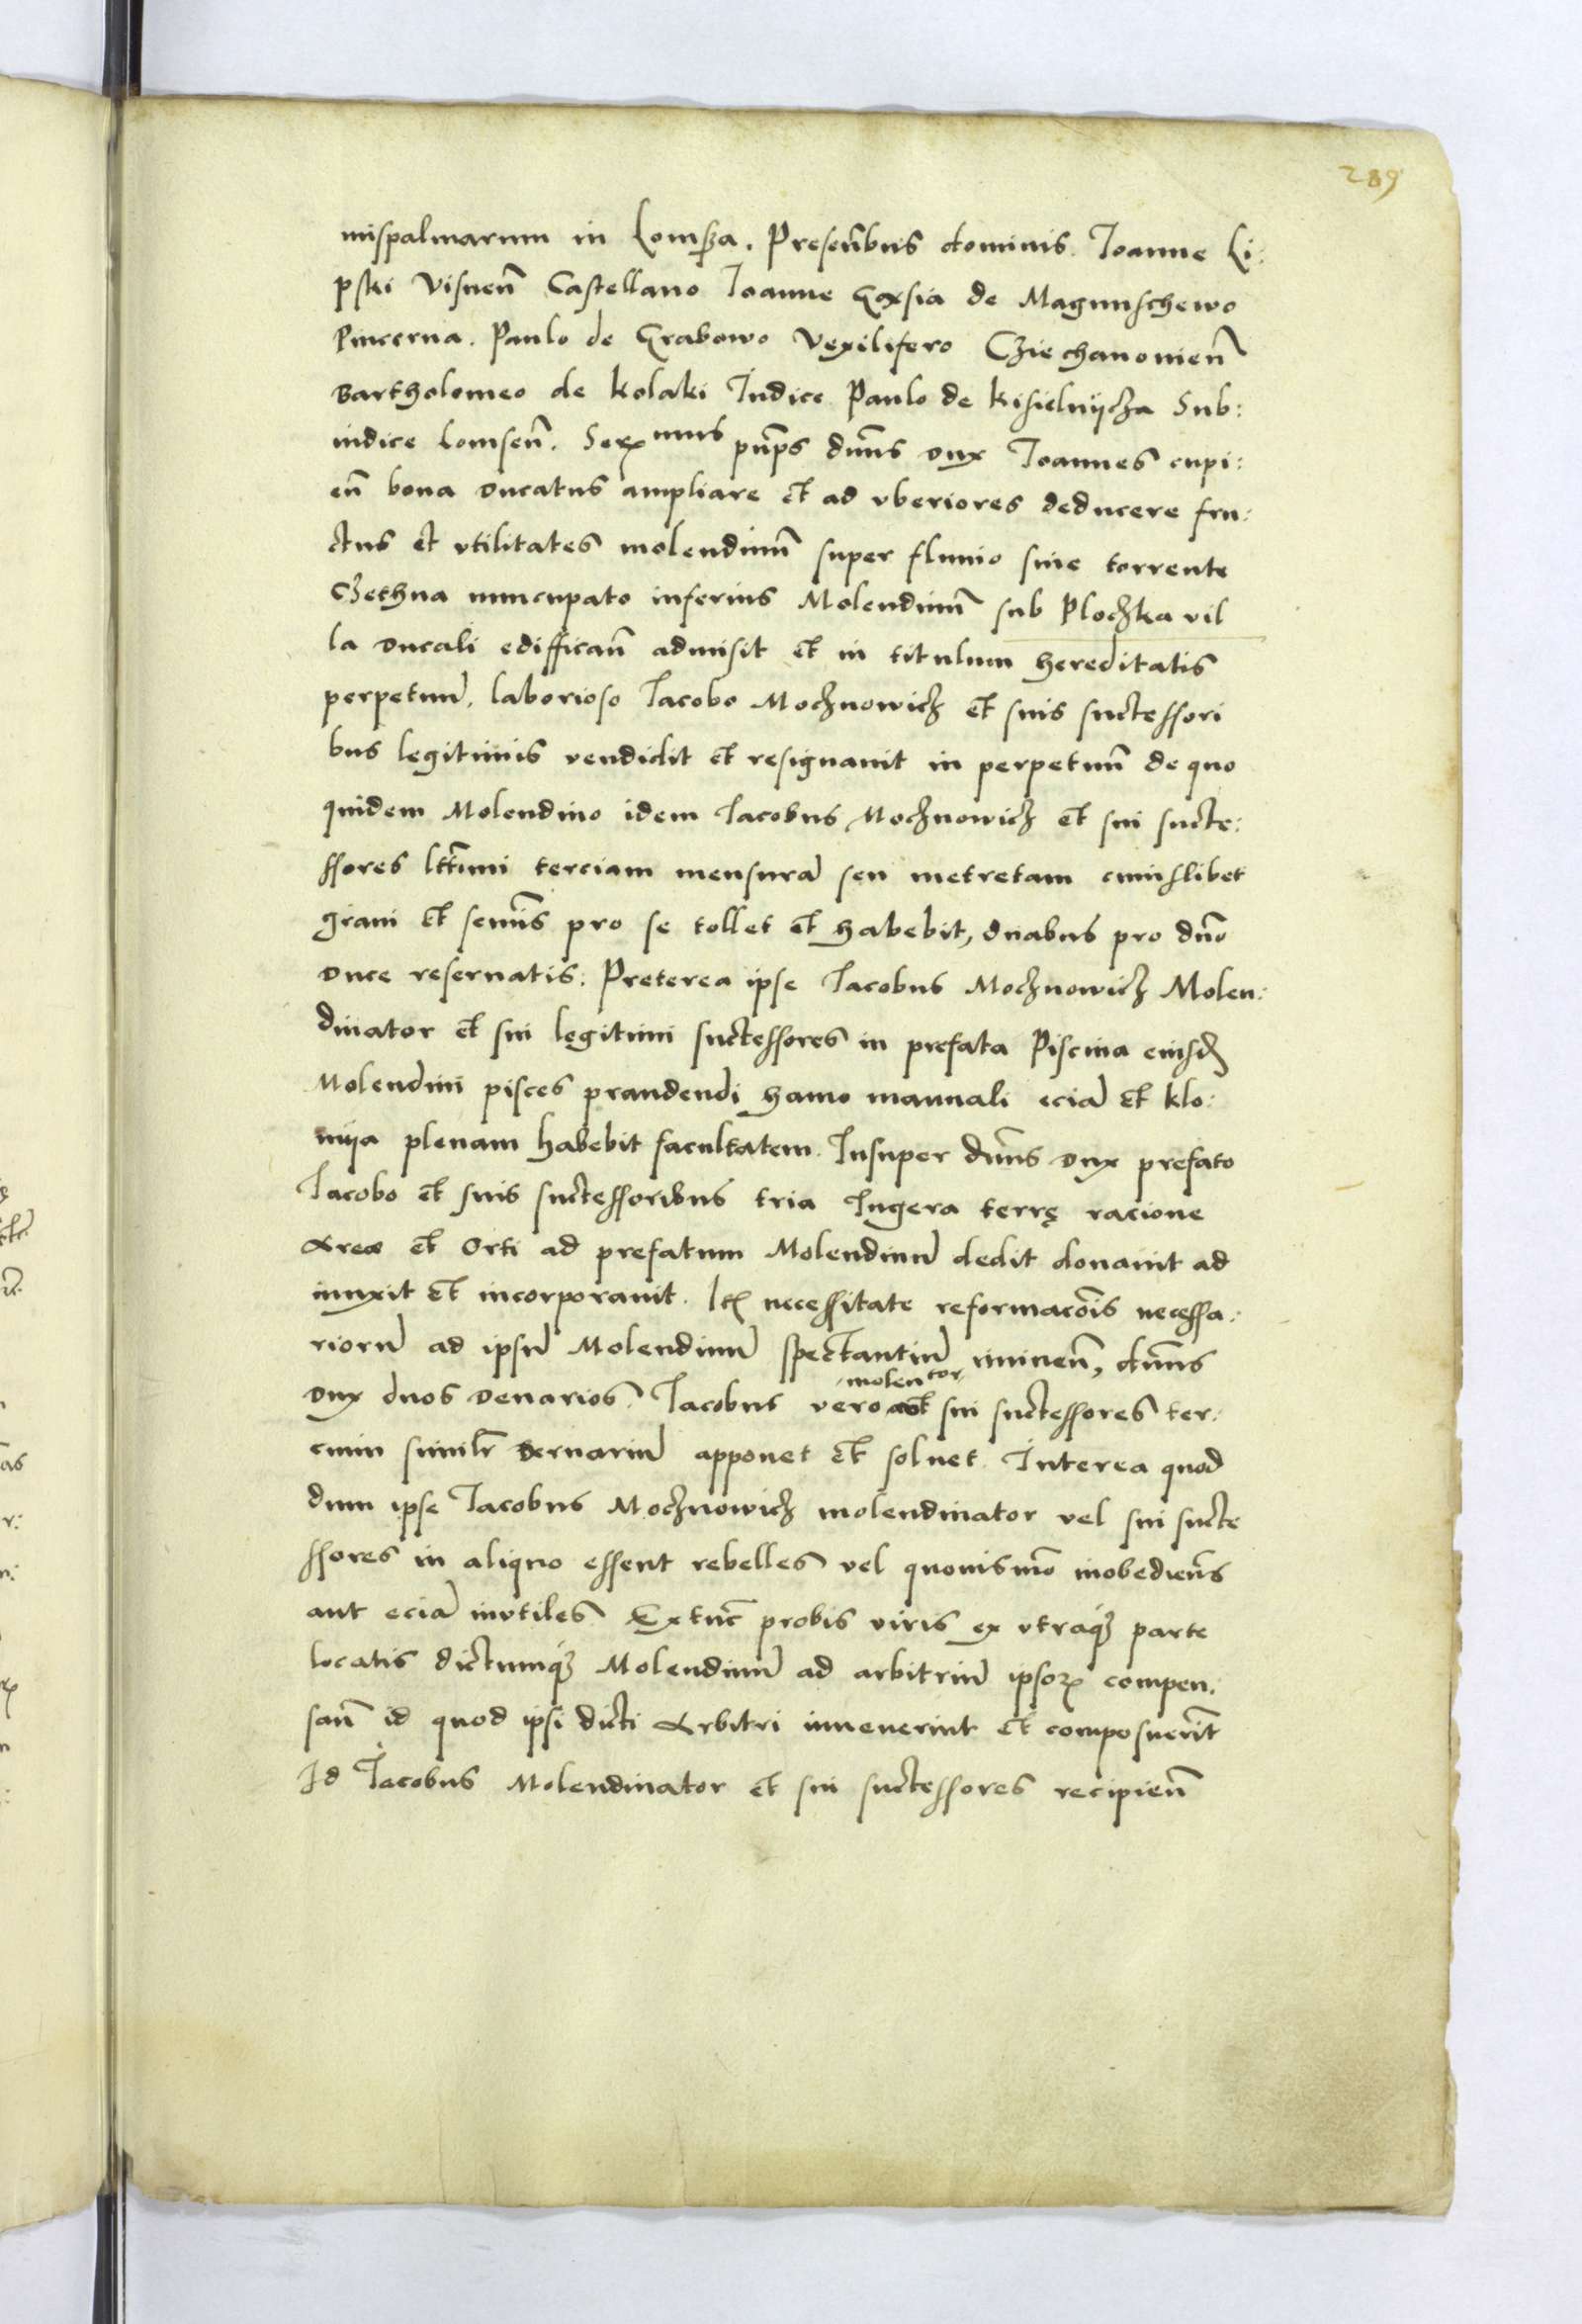 289
nispalmarum in Lomsza. Presentibus dominis. Joanne Li:
pski visnen̄ Castellano Joanne Gozsia de Magnuschewo
Pincerna. Paulo de Grabowo vexilifero Cziechanouien̄
Bartholomeo de Kolaki Judice Paulo de Kisielnijcza Sub:
iudice lomsen̄. Ser mus pn̄ps dn̄us dux Joannes cupi:
en̄ bona ducatus ampliare et ad vberiores deducere fru:
ctus et vtilitates molendinū super fluuio siue torrente
Czethna nuncupato inferius Molendinū sub Plochka vil
la ducali ediffican̄ admisit et in titulum hereditatis
perpetuū. laborioso Jacobo Mochnowich et suis successori
bus legitimis vendidit et resignauit in perpetuū de quo
quidem Molendino idem Jacobus Mochnowich et sui succe:
ssores lt̄timi terciam mensurā seu metretam cuiuslibet
grani et semīs pro se tollet et habebit, duabus pro dn̄o
duce reseruatis. Preterea ipse Jacobus Mochnowich Molen:
dinator et sui legitimi successores in prefata Piscina eiusd
Molendini pisces prandendi hamo manuali eciā et klo:
mija plenam habebit facultatem. Insuper dn̄us dux prefato
Jacobo et suis successoribus tria Jugera terrę racione
Areæ et Orti ad prefatum Molendinū dedit donauit ad
iunxit et incorporauit. It necessitate reformacōis necessa:
riorū ad ipsū Molendinū spectantiū iminen̄, dn̄us
dux duos denarios. Jacobus vero molentor et sui successores ter:
cium similr̄ dernariū apponet et soluet. Interea quod
dum ipse Jacobus Mochnowich molendinator vel sui succe
ssores in aliquo essent rebelles vel quouismō inobedien̄s
aut eciā invtiles Extūc probis viris ex vtraq parte
locatis dictumq Molendinū ad arbitriū ipsor compen:
san̄ id quod ipsi dicti Arbitri inuenerint et composuerīt
Id Jacobus Molendinator et sui successores recipien̄